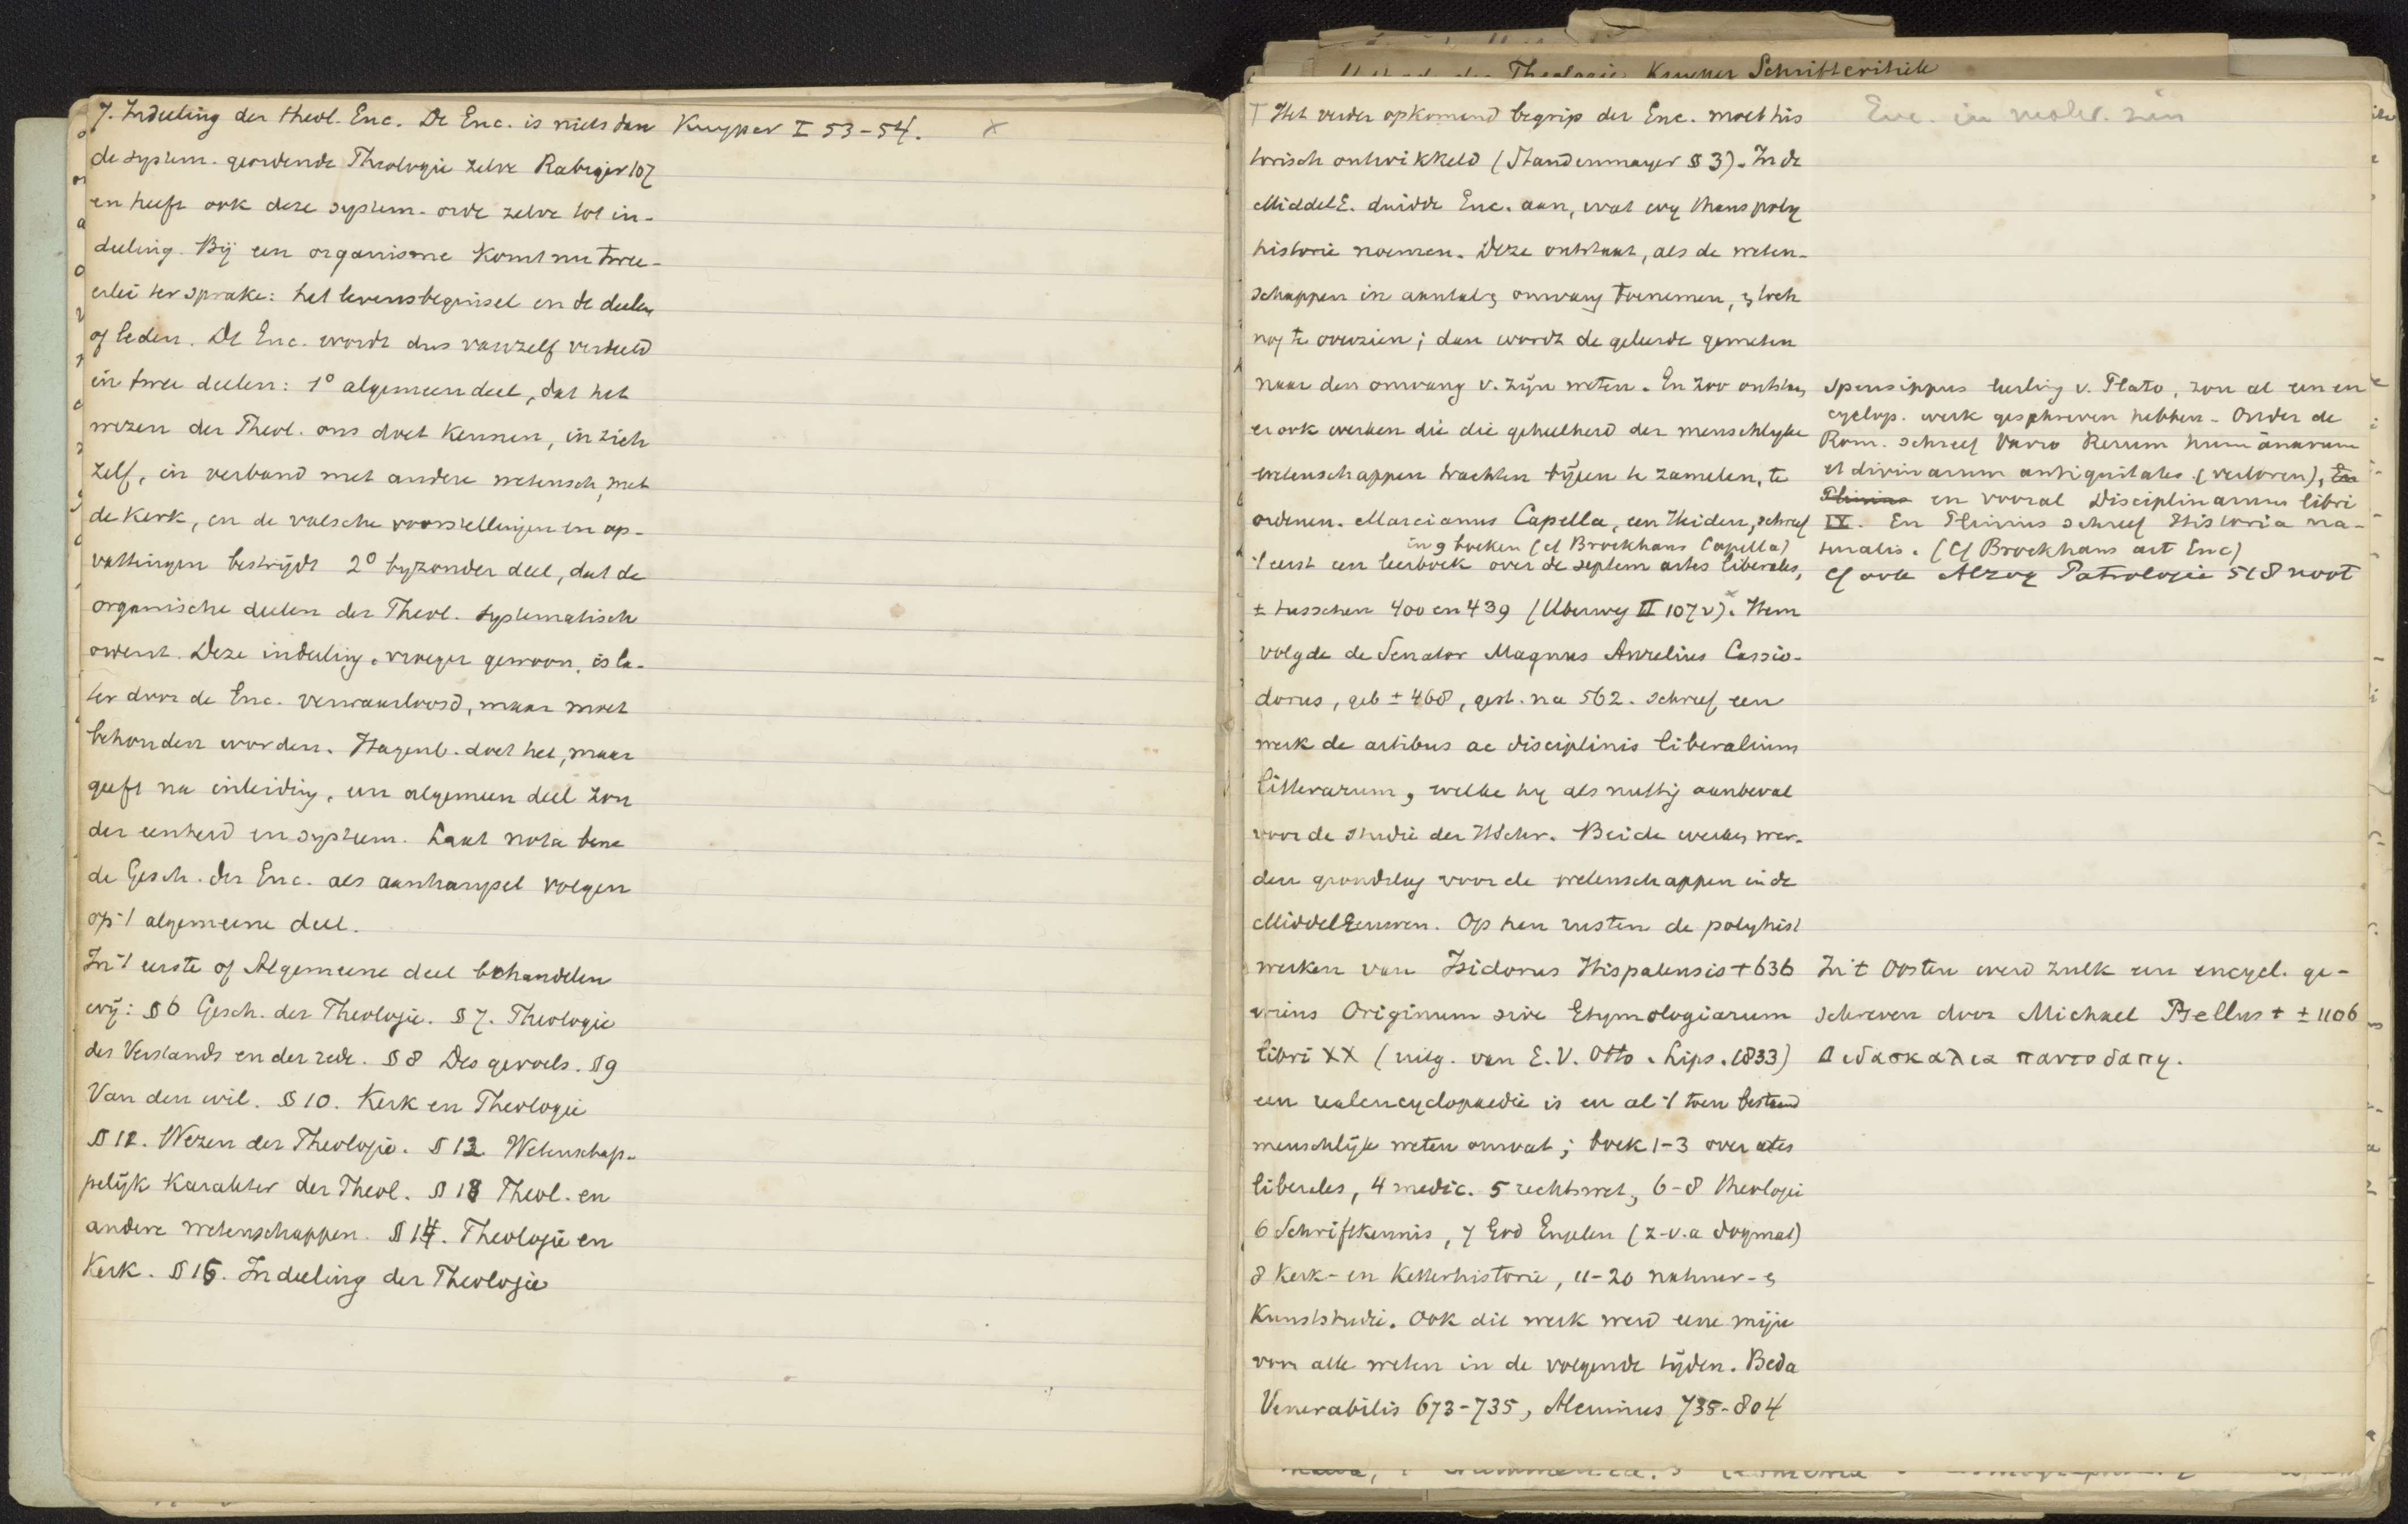 7. Indeeling der theol. Enc. De Enc. is niets dan
de system. geordende Theologie zelve Rabiger 107
en heeft ook deze system. orde zelve tot in-
deeling. Bij een organisme komt nu twee-
erlei ter sprake: het levensbeginsel en de deelen
of leden. De Enc. wordt dus vanzelf verdeeld
in twee deelen: 1° algemeen deel, dat het
wezen der Theol. ons doet kennen, in zich
zelf, in verband met andere wetensch, met
de Kerk, en de valsche voorstellingen en op-
vattingen bestrijdt 2° byzonder deel, dat de
organische deelen der Theol. systematisch
ordent. Deze indeeling, vroeger gewoon, is la-
ter door de Enc. verwaarloosd, maar moet
behouden worden. Hagenb. doet het, maar
geeft na inleiding, een algemeen deel zon
der eenheid en systeem. Laat nota bene
de Gesch. der Enc. als aanhangsel volgen
op 't algemeene deel.
In 't eerste of Algemeene deel behandelen
wij: § 6 Gesch. der Theologie. § 7. Theologie
des Verstands en der rede. § 8 Des gevoels. § 9
Van den wil. § 10. Kerk en Theologie
§ 12. Wezen der Theologie. § 13. Wetenschap-
pelijk karakter der Theol. § 18 Theol. en
andere wetenschappen. § 14. Theologie en
Kerk. § 15. Indeeling der Theologie
Kuyper I 53-54. x
Theologie Kuyper Schriftcritiek
Het verder opkomend begrip der Enc. moet his
torisch ontwikkeld (Staudenmayer § 3). In de
MiddelE. duidde Enc. aan, wat wy thans poly
historie noemen. Deze ontstaat, als de weten-
schappen in aantal & omvang toenemen, & toch
nog te overzien; dan wordt de geleerde gemeten
naar den omvang v. zijn weten. En zoo ontst.
er ook werken die die geheelheid der menschlyke
wetenschappen trachten bijeen te zamelen, te
ordenen. Marcianus Capella, een Heiden, schreef
in 9 boeken (cf Brockhaus Capella)
't eerst een leerboek over de septem artes liberales,
± tusschen 400 en 439 (Uberweg II 107 v). Hem
volgde de Senator Magnus Aurelius Cassio-
dorus, geb ± 468, gest. na 562. schreef een
werk de artibus ac disciplinis liberalium
litterarum, welke hy als nuttig aanbeval
voor de studie der HSchr. Beide werken wer-
den grondslag voor de wetenschappen in de
MiddelEeuwen. Op hen rusten de polyhist
werken van Isidorus Hispalensis † 636
wiens Originum sive Etymologiarum
libri XX (uitg. van E. V. Otto. Lips. 1833)
een realencyclopaedie is en al 't toen bestaand
menschlijk weten omvat; boek 1-3 over artes
liberales, 4 medic. 5 rechtswet., 6-8 theologie
6 Schriftkennis, 7 God Engelen (z.v.a dogmat)
8 Kerk- en Ketterhistorie, 11-20 natuur- &
Kunststudie. Ook dit werk werd eene mijn
voor alle weten in de volgende tijden. Beda
Venerabilis 673-735, Alcuinus 735-804
Enc. in
Speusippus leerling v. Plato, zou al een en
cyclop. werk geschreven hebben. Onder de
Rom. schreef Varro Rerum humanarum
et divinarum antiquitates (verloren), En
Plinius en vooral Disciplinarum libri
IX. En Plinius schreef Historia na-
turalis. (Cf Brockhaus art Enc)
Cf ook Alzog Patrologie 518 noot
In 't Oosten werd zulk een encycl. ge-
schreven door Michael Psellus † ± 1106
Διδασκαλια παντοδαπη.